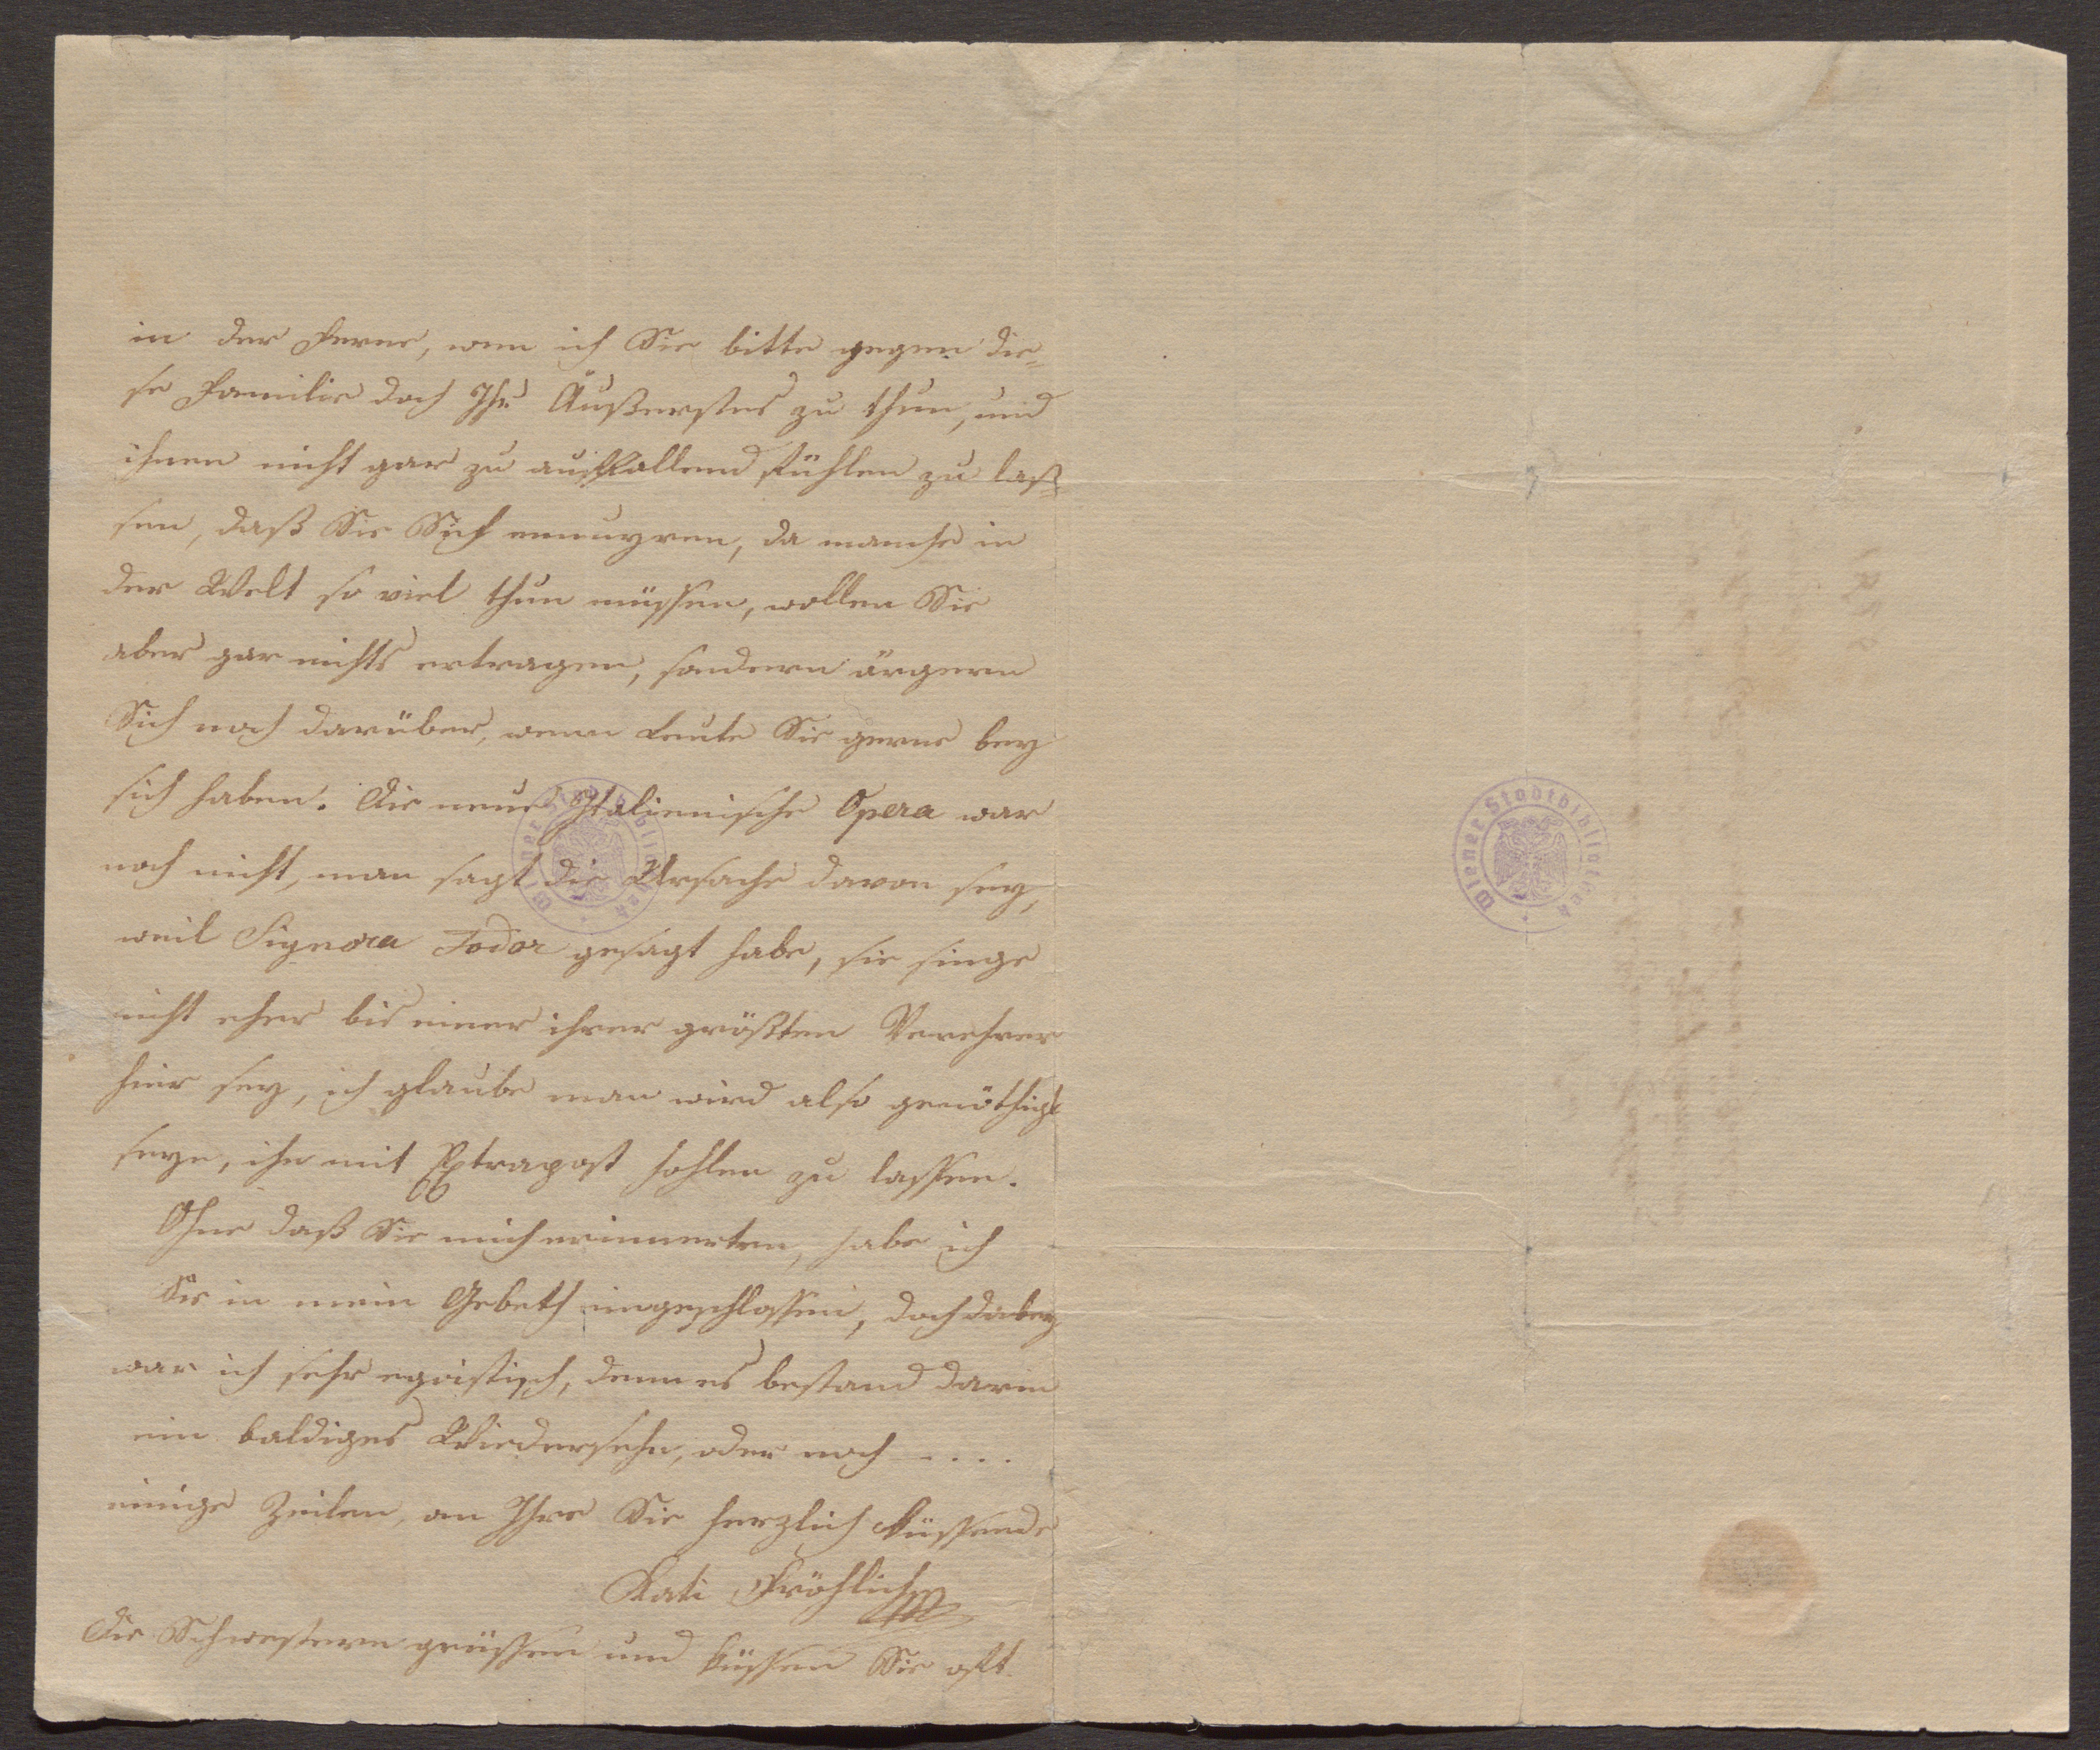 in der Ferne, wen ich Sie bitte gegen die¬
se Familie doch Ihr Äußerstes zu thun, und
ihnen nicht gar zu auffallend fühlen zu laß¬
sen, daß Sie Sich ennuyren, da manche in
der Welt so viel thun müssen, wollen Sie
aber gar nichts ertragen, sondern ärgern
Sich noch darüber, wenn Leute Sie gerne bey
sich haben. Die neue Italienische Opera war
noch nicht, man sagt die Ursache davon sey,
weil Signora Fodor gesagt habe, sie singe
nicht eher bis einer ihrer größten Verehrer
hier sey, ich glaube man wird also genöthigt
seyn, ihn mit Extrapost hohlen zu lassen.
Ohne daß Sie mich erinnerten, habe ich
Sie in mein Gebeth eingeschlossen, doch dabey
war ich sehr egoistisch, denn es bestand darin
ein baldiges Wiedersehn, oder noch - . . . .
einige Zeilen, an Ihre Sie herzlich küssende
Kati Fröhlich
Die Schwestern grüssen und küssen Sie oft.
Wiener Stadtbibliothek
Wiener Stadtbibliothek